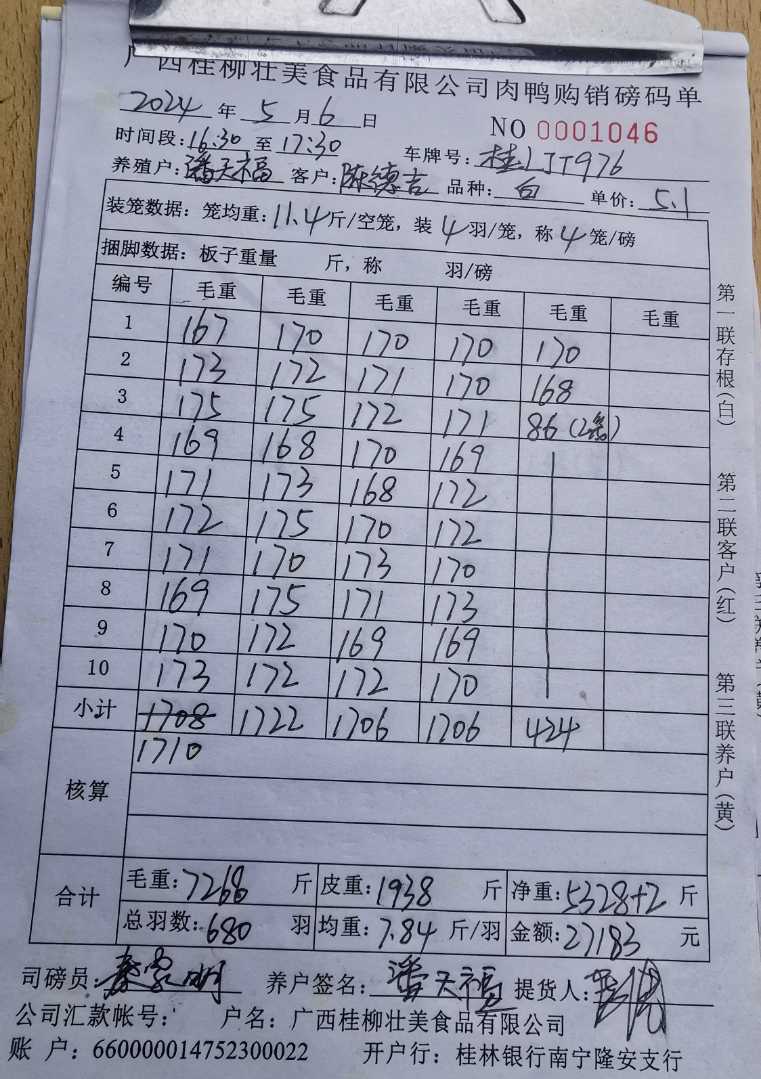 广西桂柳壮美食品有限公司肉鸭购销磅码单
2024年5月6日 NO 0001046
时间段:16:30至17:30 车牌号:桂LJT976
养殖户:潘天福 客户:陈德吉 品种:白 单价:5.1
装笼数据:笼均重:11.4斤/空笼,装4羽/笼,称4笼/磅
捆脚数据:板子重量 斤,称 羽/磅
编号 毛重 毛重 毛重 毛重 毛重 毛重
1 167 170 170 170 170
2 173 172 171 170 168
3 175 175 172 171 86(2笼)
4 169 168 170 169
5 171 173 168 172
6 172 175 170 172
7 171 170 173 170
8 169 175 171 173
9 170 172 169 169
10 173 172 172 170
小计 1708 1722 1706 1706 424
1710
核算
合计 毛重:7268斤 皮重:1938斤 净重:5328+2斤
总羽数:680羽 均重:7.84斤/羽 金额:27183元
司磅员: 养户签名:潘天福 提货人:
公司汇款帐号: 户名:广西桂柳壮美食品有限公司
账 户:660000014752300022 开户行:桂林银行南宁隆安支行
第一联存根(白)
第二联客户(红)
第三联养户(黄)